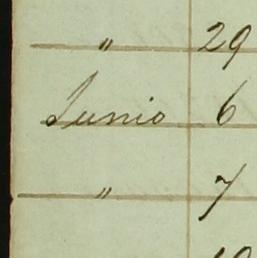 " 29
Junio 6
" 7